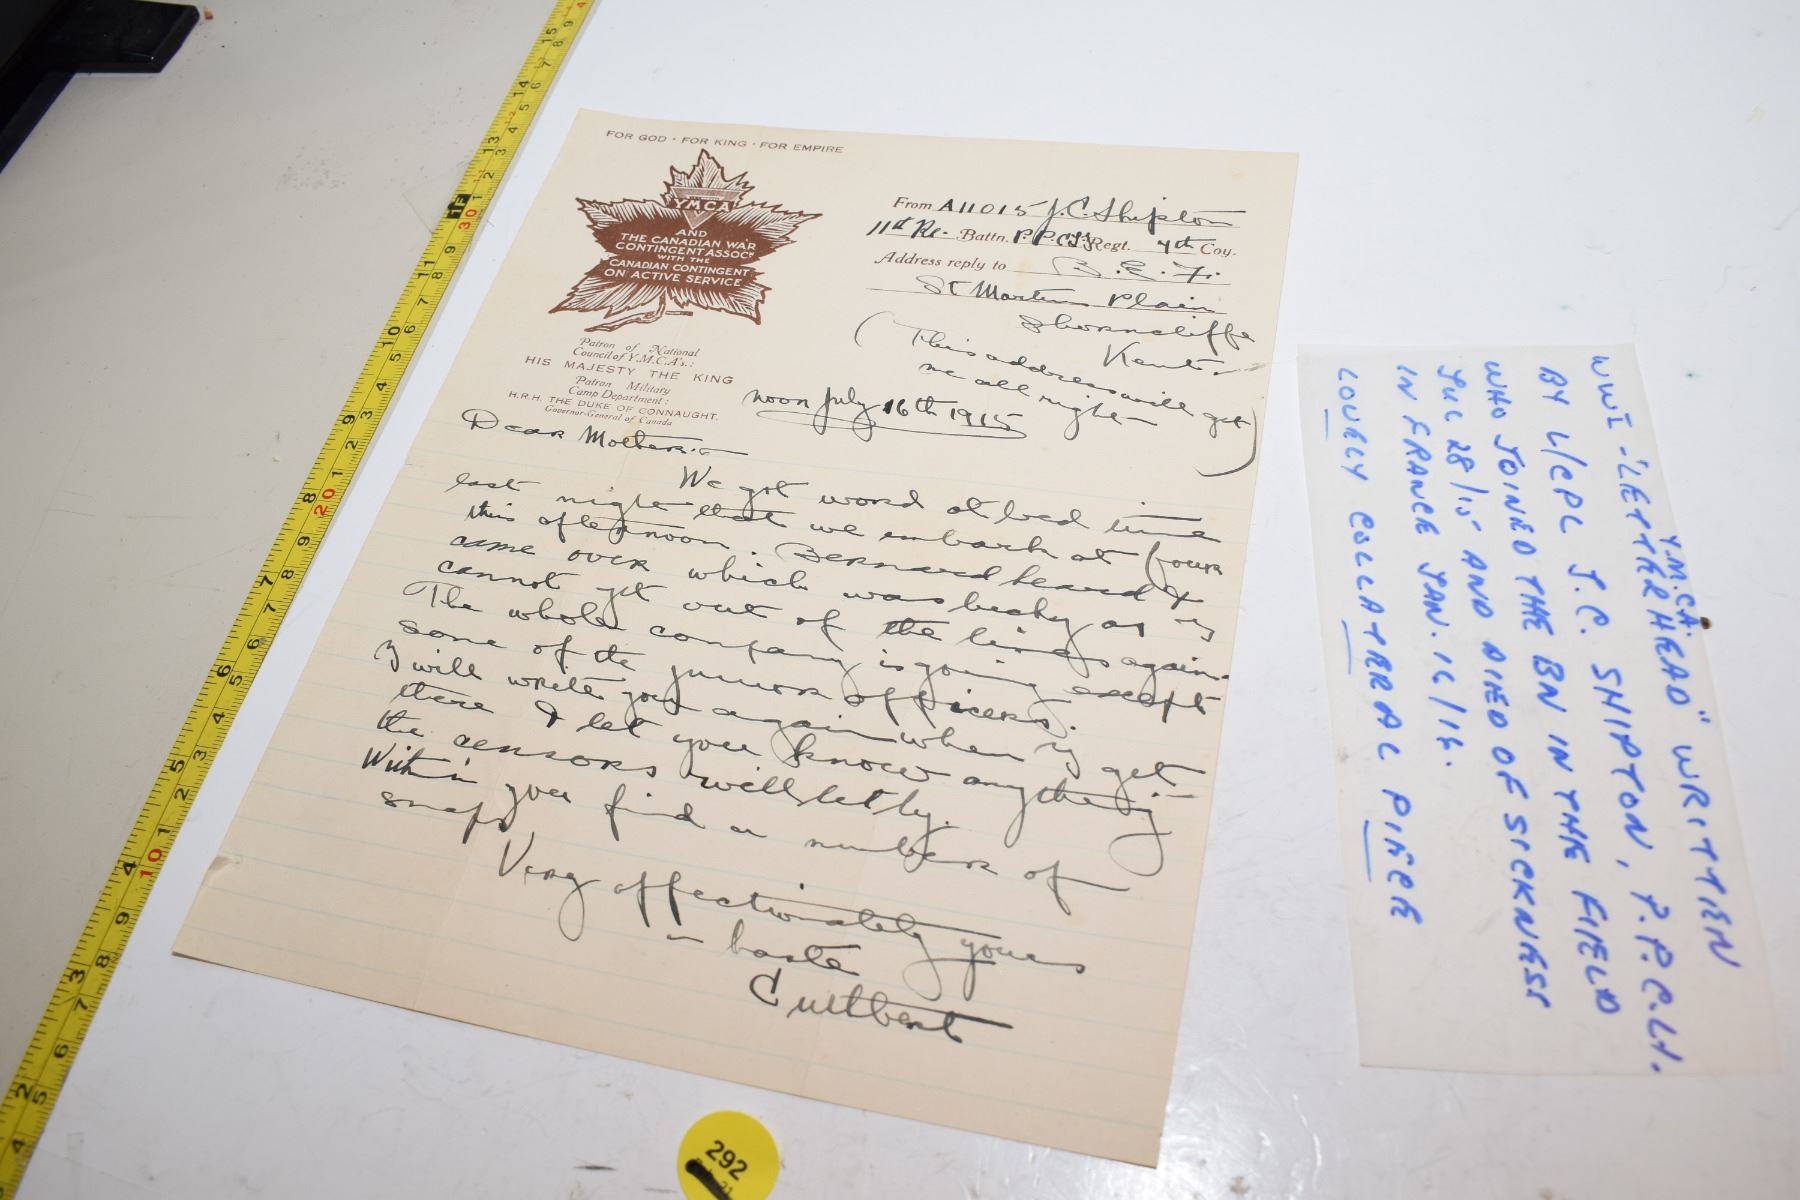 FOR GOD · FOR KING · FOR EMPIRE
YMCA
AND
THE CANADIAN WAR
CONTINGENT ASSOCN
WITH THE
CANADIAN CONTINGENT
ON ACTIVE SERVICE
Patron of National
Council of Y.M.C.A's.:
HIS MAJESTY THE KING
Patron Military
Camp Department:
H.R.H. THE DUKE OF CONNAUGHT.
Governor-General of Canada
From A11015 J.C. Shipton
11th Re. Battn. P.P.C.L.I. Regt. 4th Coy.
Address reply to B.E.F.
St Martins Plain
Shorncliffe
Kent.
(This address will get
me all right)
noon July 16th 1915
Dear Mother:-
We got word at bed time
last night that we embark at four
this afternoon. Bernard heard &
came over which was lucky as I
cannot get out of the lines again.
The whole company is going except
some of the junior officers.
I will write you again when I get
there & let you know anything
the censors will let by.
Within you find a number of
snaps
Very affectionately yours
- haste
Cuthbert
WWI - "LETTERHEAD" WRITTEN
Y.M.CA.
BY L/CPL J.C. SHIPTON, P.P.C.L.I.
WHO JOINED THE BN IN THE FIELD
JUL 28/15 AND DIED OF SICKNESS
IN FRANCE JAN. 16/16.
LOVELY COLLATERAL PIECE
292